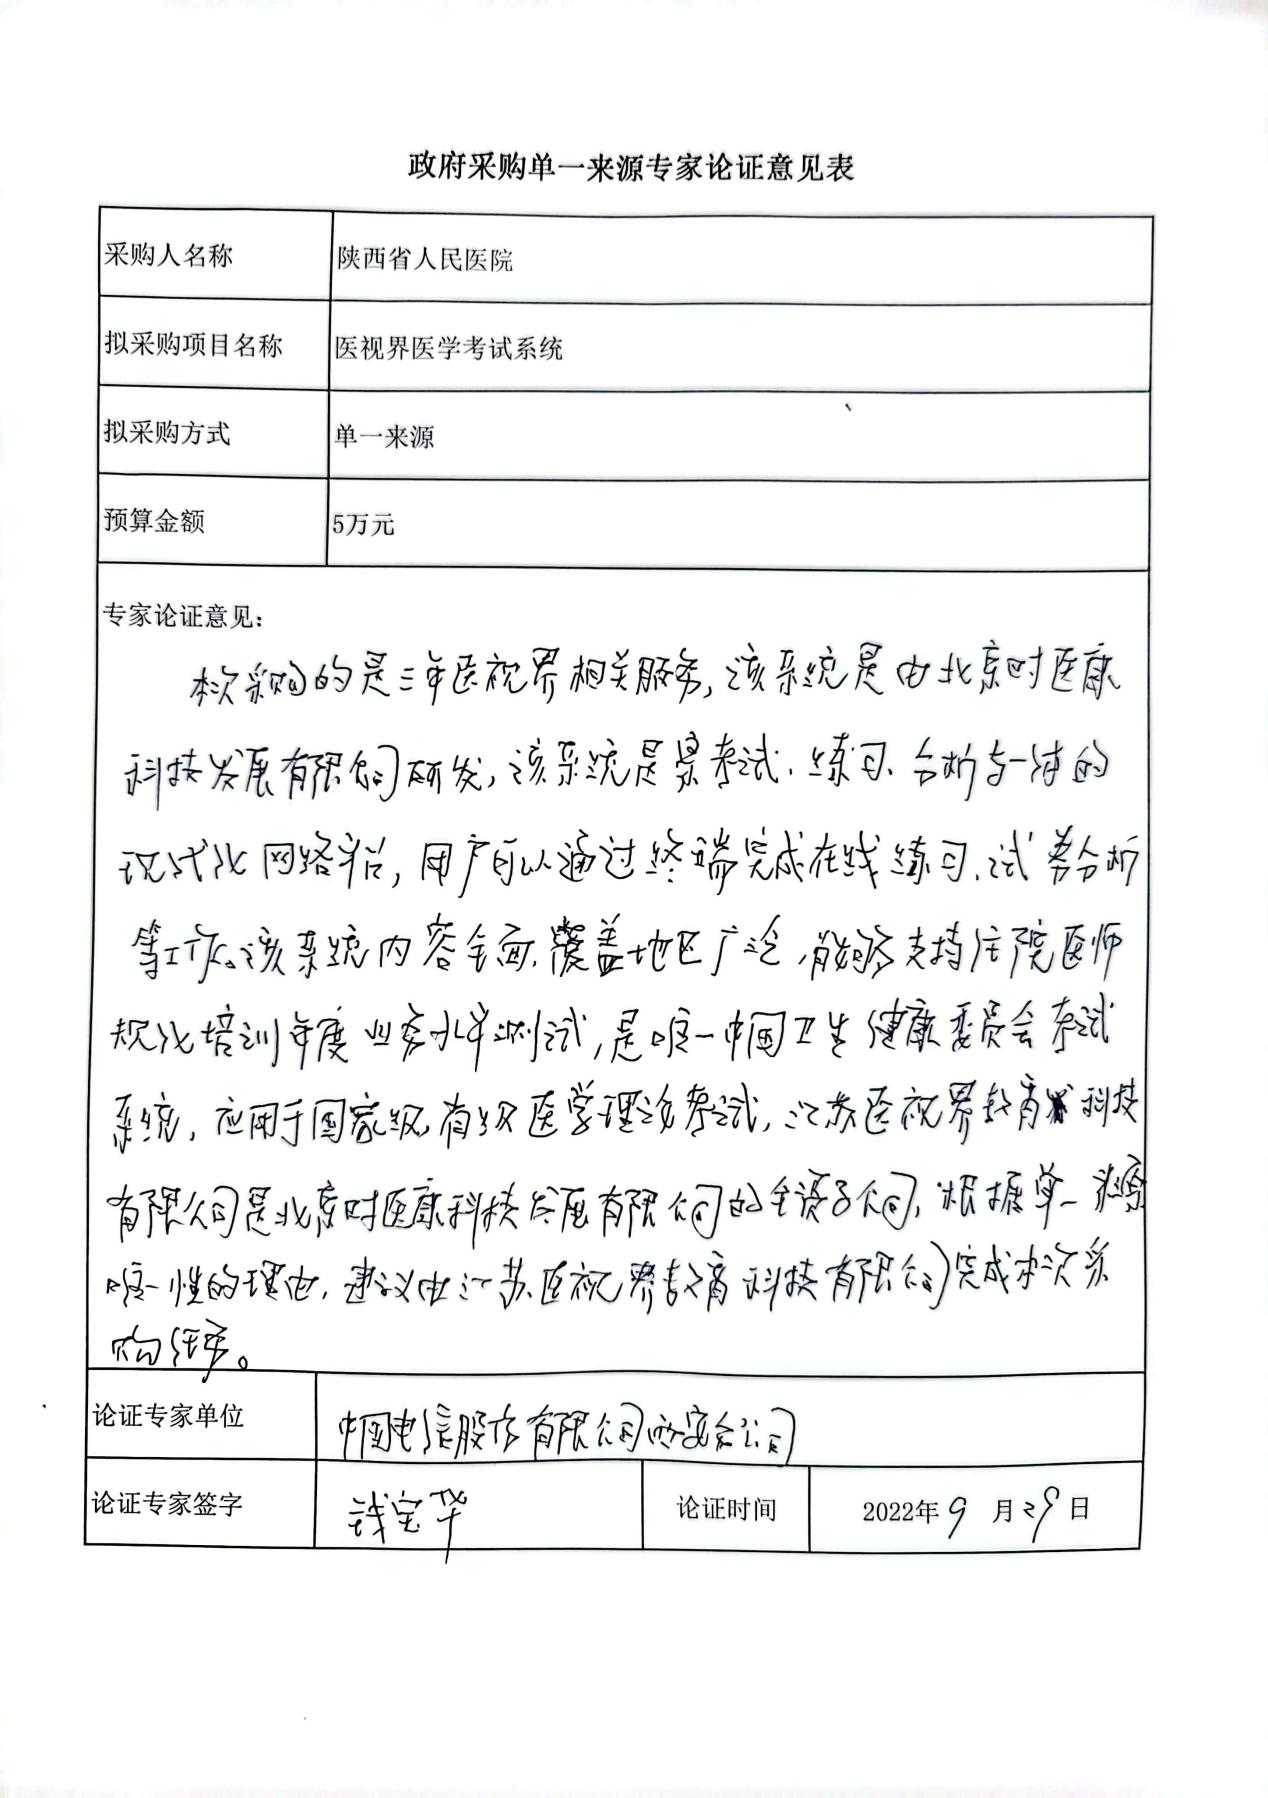 政府采购单一来源专家论证意见表
采购人名称 陕西省人民医院
拟采购项目名称 医视界医学考试系统
拟采购方式 单一来源
预算金额 5万元
专家论证意见：
本次采购的是三年医视界相关服务，该系统是由北京时医康
科技发展有限公司研发，该系统是景考试、练习、分析与一体的
现代化网络平台，用户可以通过终端完成在线练习、试卷分析
等工作。该系统内容全面、覆盖地区广泛，能够支持住院医师
规化培训年度业务水平测试，是唯一中国卫生健康委员会考试
系统，应用于国家级、省级医学理论考试，江苏医视界教育科技
有限公司是北京时医康科技发展有限公司的全资子公司，根据单一来源
唯一性的理由，建议由江苏医视界教育科技有限公司完成本次采
购任务。
论证专家单位 中国电信股份有限公司西安分公司
论证专家签字 钱宝华 论证时间 2022年9月29日